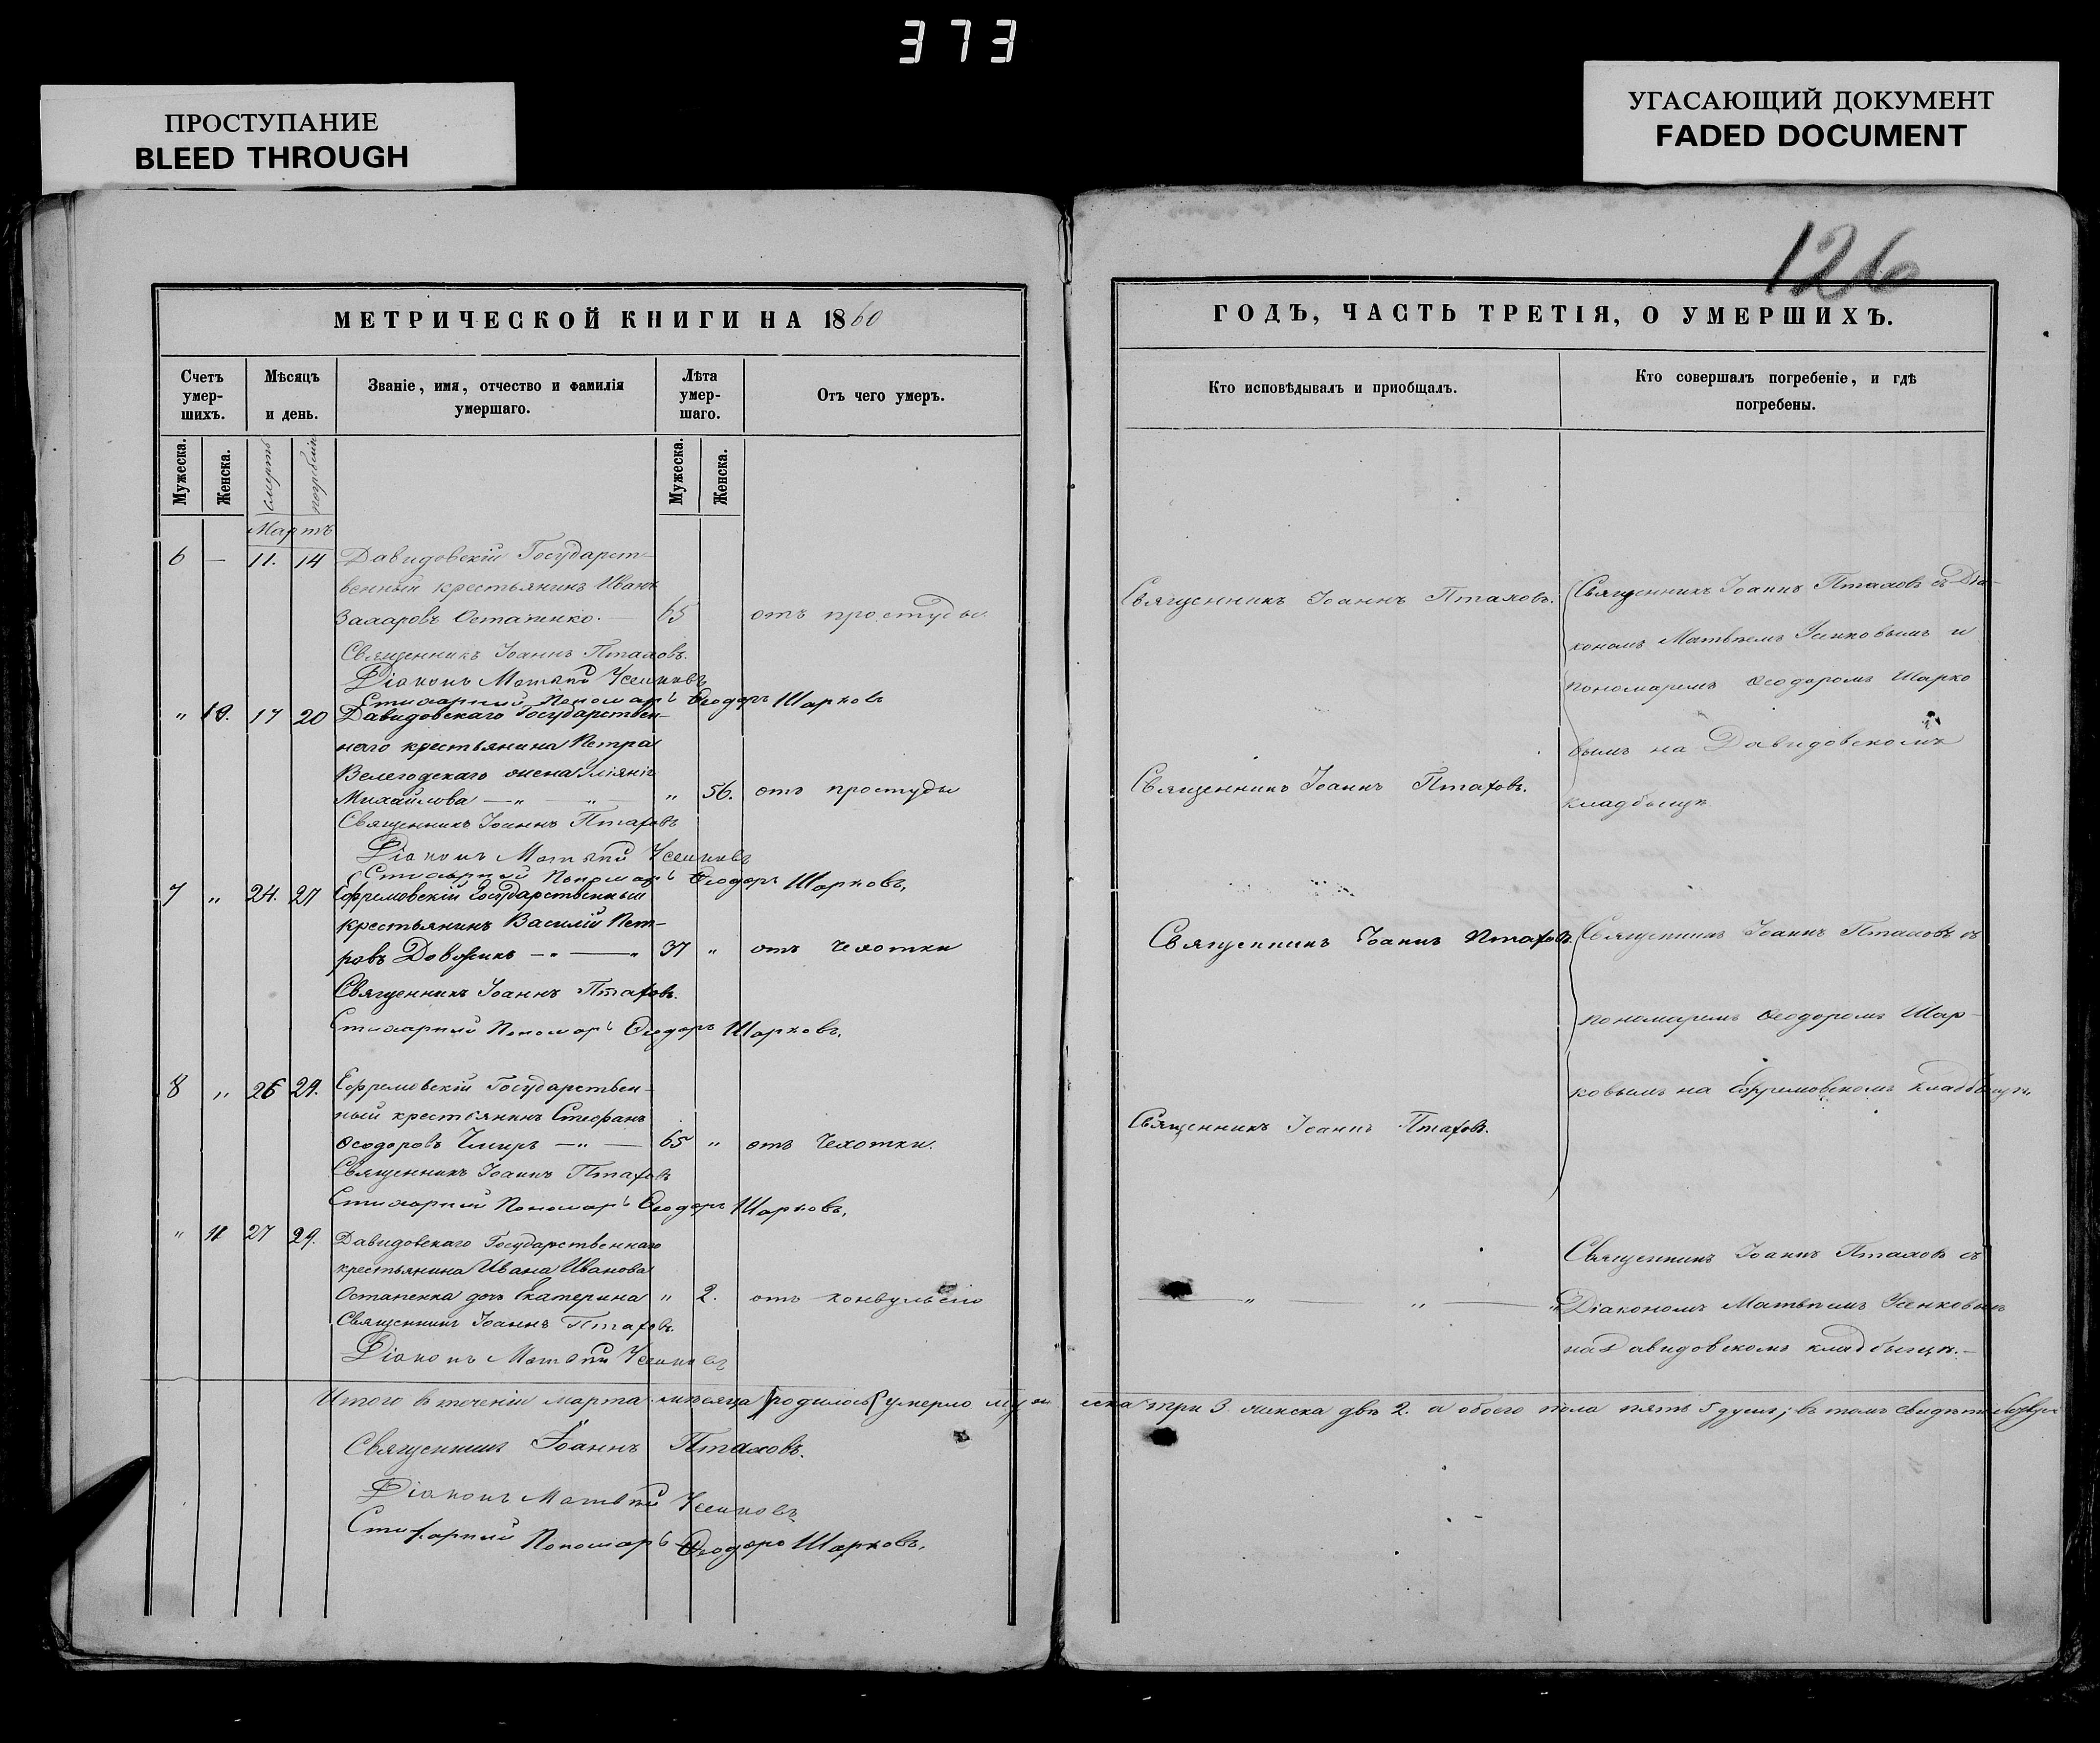 373
ПРОСТУПАНИЕ
BLEED THROUGH
УГАСАЮЩИЙ ДОКУМЕНТ
FADED DOCUMENT
126
МЕТРИЧЕСКОЙ КНИГИ НА 1860
Счетъ умер-шихъ.
Мѣсяцъ и день.
Званіе, имя, отчество и фамилія умершаго.
Лѣта умер-шаго.
Отъ чего умеръ.
Мужеска. Женска. смерть погребенія Мужеска. Женска.
Мартъ
6 — 11. 14 Давидовскій Государст-
венный крестьянинъ Иванъ
Захаровъ Остапенко. — 65 отъ простуды
Священникъ Іоаннъ Птаховъ.
Діаконъ Матѳій Усенковъ
Стихарный Пономарь Ѳеодоръ Шарковъ
" 10. 17 20 Давидовскаго Государствен-
наго крестьянина Петра
Велегодскаго жена Уліянія
Михайлова — " — " — " 56. отъ простуды
Священникъ Іоаннъ Птаховъ
Діаконъ Матѳій Усенковъ
Стихарный Пономарь Ѳеодоръ Шарковъ,
7 " 24. 27 Ефремовскій Государственный
крестьянинъ Василій Пет-
ровъ Довжикъ — " — " 37 " отъ чехотки
Священникъ Іоаннъ Птаховъ.
Стихарный Пономарь Ѳеодоръ Шарковъ,
8 " 26 29. Ефремовскій Государствен-
ный крестьянинъ Стефанъ
Ѳеодоровъ — " — 65 " отъ Чехотки.
Священникъ Іоаннъ Птаховъ
Стихарный Пономарь Ѳеодоръ Шарковъ,
" 11 27 29. Давидовскаго Государственнаго
крестьянина Ивана Иванова
Остапенка дочь Екатерина " 2. отъ конвульсіи
Священникъ Іоаннъ Птаховъ.
Діаконъ Матѳій Усенковъ
Итого въ теченіи марта мѣсяца (родилось) умерло муж
Священникъ Іоаннъ Птаховъ.
Діаконъ Матѳій Усенковъ
Стихарный Пономарь Ѳеодоръ Шарковъ,
ГОДЪ, ЧАСТЬ ТРЕТІЯ, О УМЕРШИХЪ.
Кто исповѣдывалъ и пріобщалъ.
Кто совершалъ погребеніе, и гдѣ
погребены.
Священникъ Іоаннъ Птаховъ.
Священникъ Іоаннъ Птаховъ съ Діа-
кономъ Матвѣемъ Усенковымъ и
пономаремъ Ѳеодоромъ Шарко
вымъ на Давидовскомъ
кладбыщѣ.
Священникъ Іоаннъ Птаховъ.
Священникъ Іоаннъ Птаховъ.
Священникъ Іоаннъ Птаховъ съ
пономаремъ Ѳеодоромъ Шар-
ковымъ на Ефремовскомъ кладбыщѣ.
Священникъ Іоаннъ Птаховъ.
— " — " — "
Священникъ Іоаннъ Птаховъ съ
Діакономъ Матвѣемъ Усенковымъ
на Давидовскомъ кладбыщѣ. —
еска три 3. женска двѣ 2. а обоего пола пять 5 душъ; въ томъ